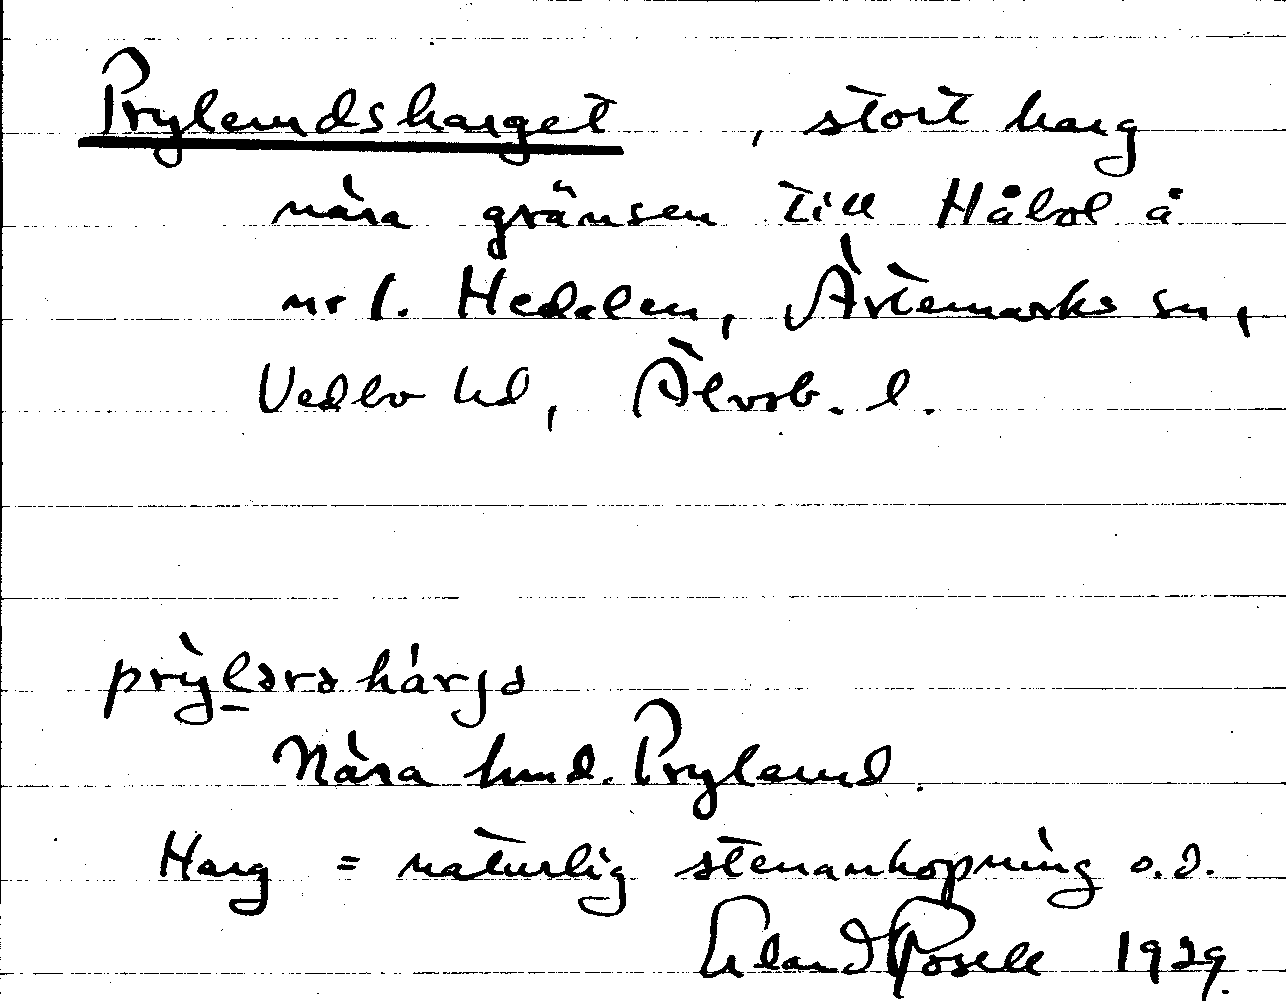 Prylemdsharget, stort harg
nära gränsen till Håbol å
nr 1. Hedalen, Ärtemarks sn,
Vedbo hd, Älvsb. l.
prỳlərəhárjə
Nära hmd. Prylemd.
Harg = naturlig stenanhopning o.d.
Erland Rosell 1929.